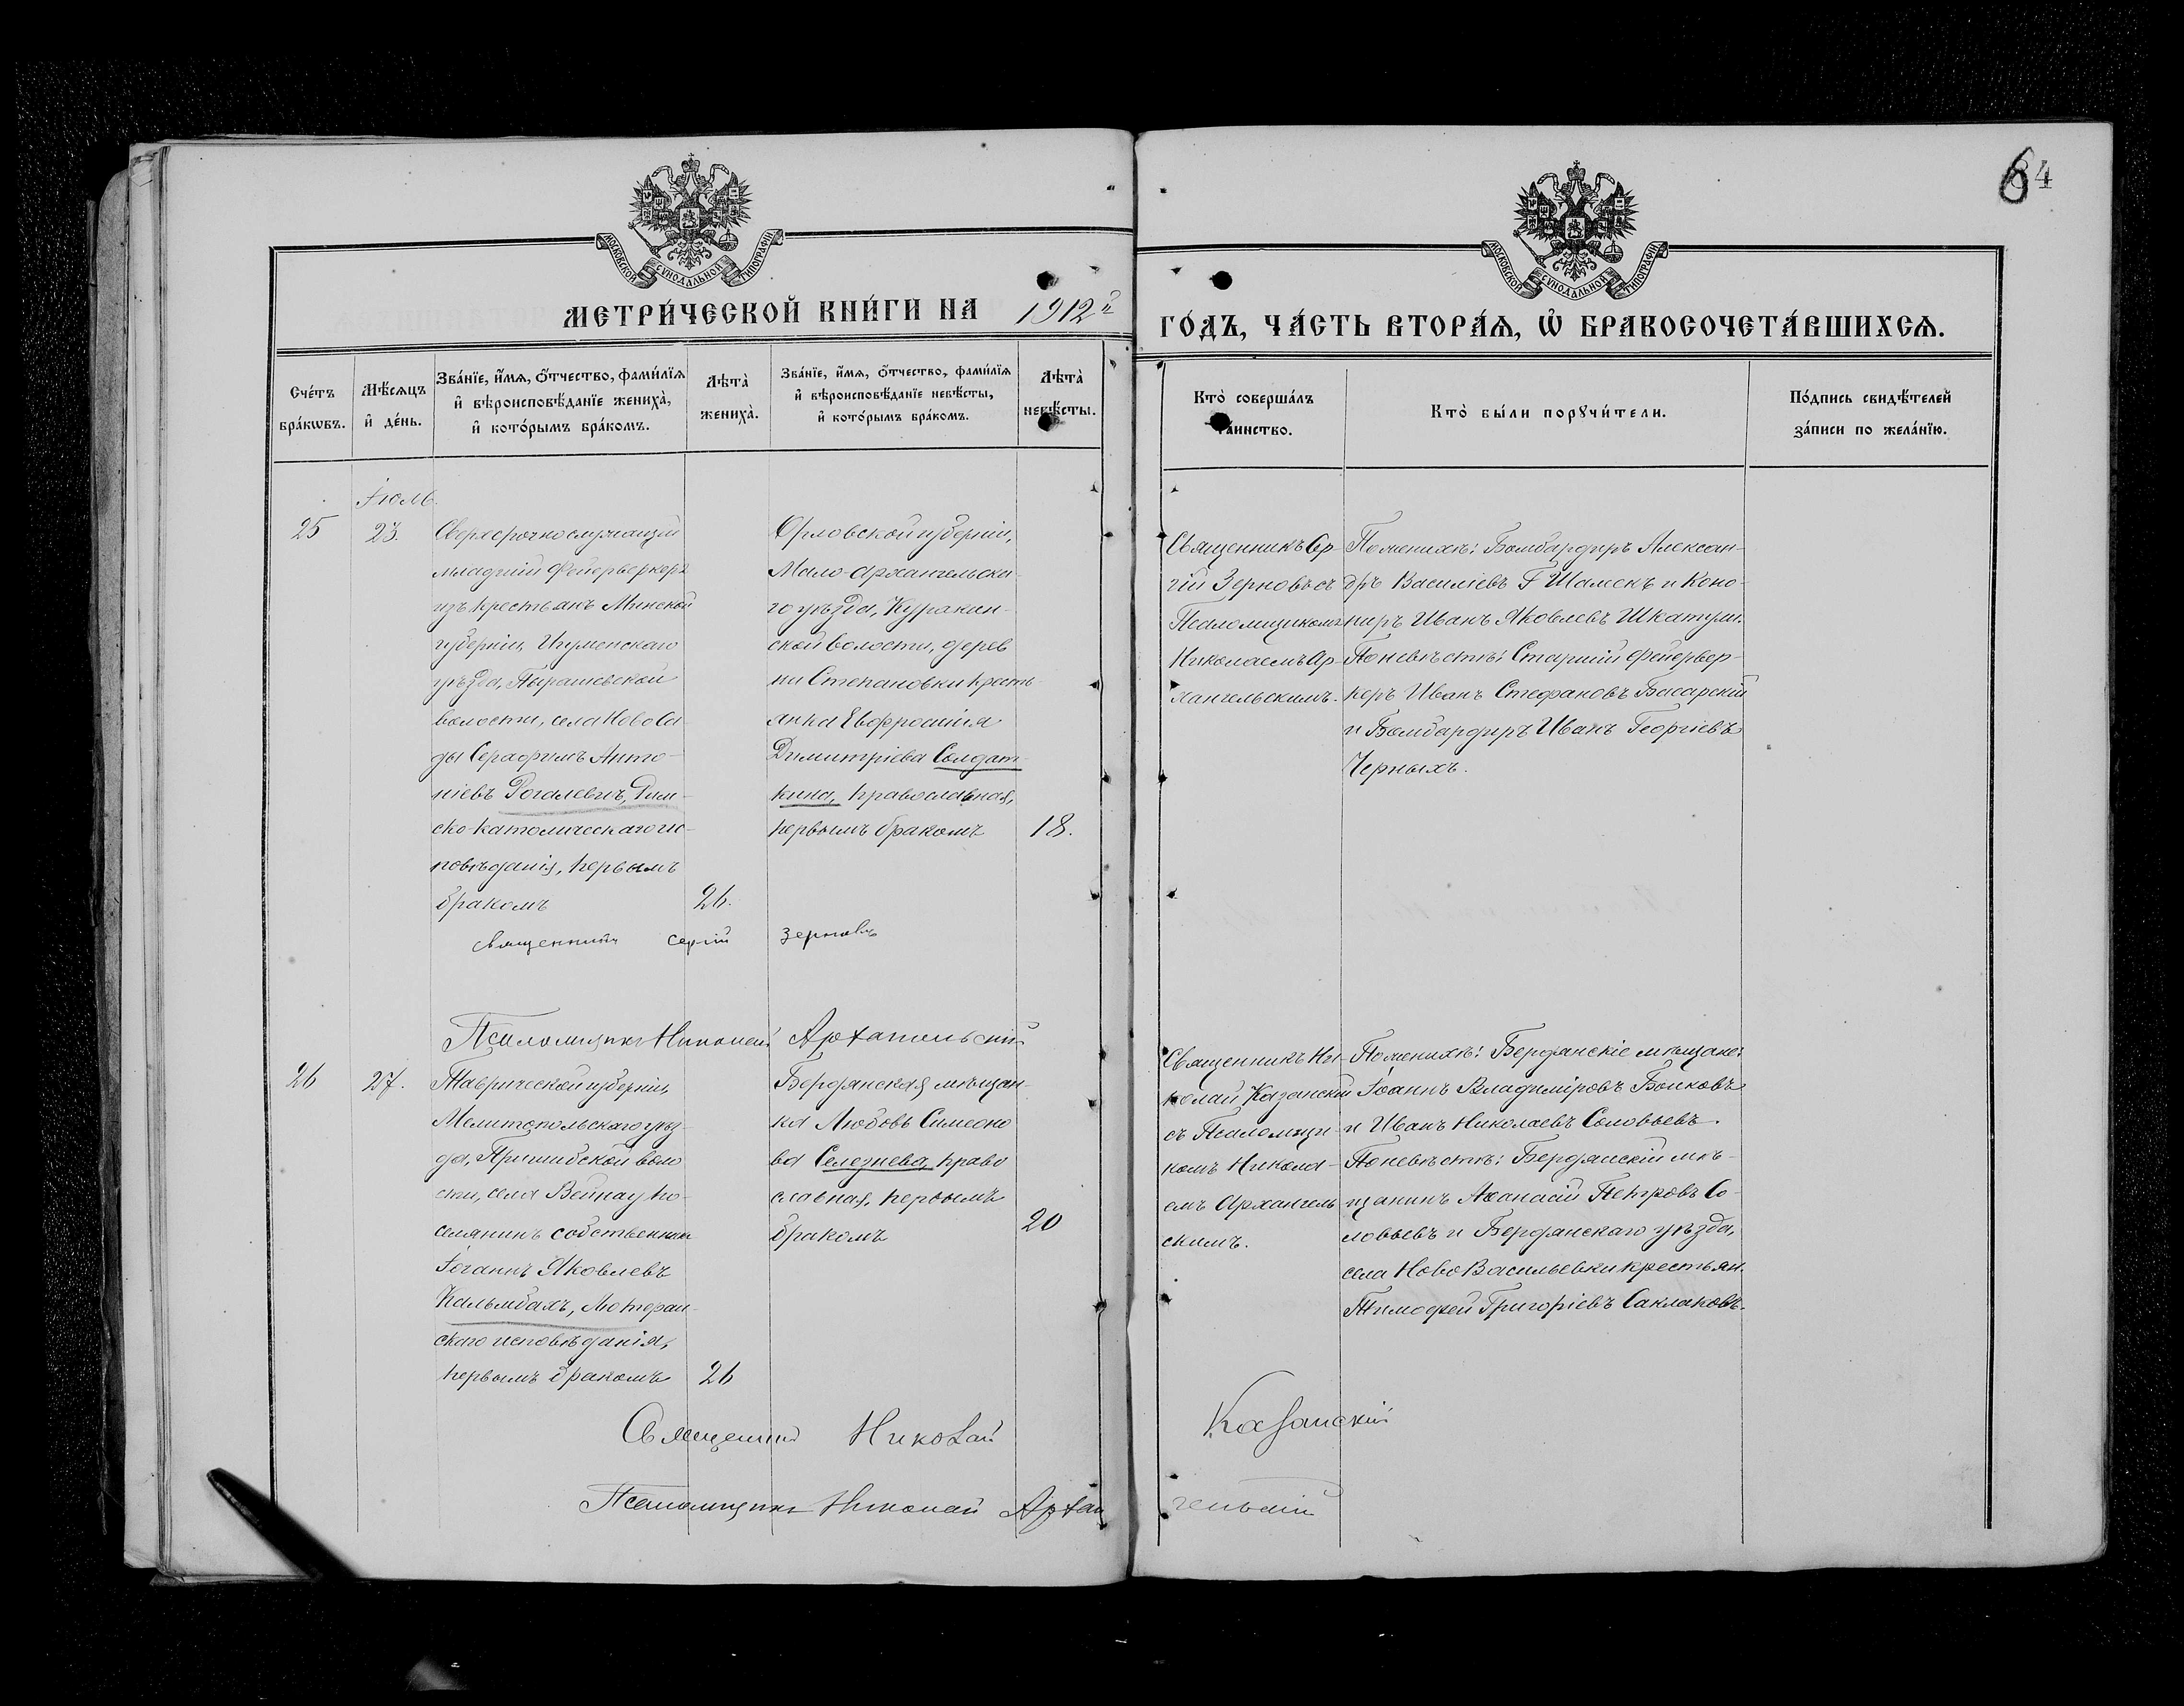 64
МОСКОВСКОЙ СѴНОДАЛЬНОЙ ТИПОГРАФІИ
МОСКОВСКОЙ СѴНОДАЛЬНОЙ ТИПОГРАФІИ
МЕТРИ́ЧЕСКОЙ КНИ́ГИ НА 1912й
ГО́ДЪ, ЧА́СТЬ ВТОРА́Ѧ, Ѽ БРАКОСОЧЕТА́ВШИХСѦ.
Сче́тъ
бра́кѡвъ.
Мѣ́сяцъ
и҆ де́нь.
Зва́нїе, и҆́мѧ, ѻ҆́тчество, фами́лїѧ
и҆ вѣроисповѣ́данїе жениха̀,
и҆ кото́рымъ бра́комъ.
Лѣта̀
жениха̀.
Зва́нїе, и҆́мѧ, ѻ҆́тчество, фами́лїѧ
и҆ вѣроисповѣ́данїе невѣ́сты,
и҆ кото́рымъ бра́комъ.
Лѣта̀
невѣ́сты.
Кто̀ соверша́лъ
та́инство.
Кто̀ бы́ли порꙋчи́тели.
По́дпись свидѣ́телей
за́писи по жела́нїю.
Іюль.
25
23.
Сверхсрочнослужащій
младшій Фейерверкеръ
изъ крестьянъ Минской
губерніи, Игуменскаго
уѣзда,
волости, села Ново Са-
ды Серафимъ Анто-
ніевъ Рогалевичъ, Рим-
ско-католическаго ис-
повѣданія, первымъ
бракомъ
26.
Орловской губерніи,
Мало-Архангельска-
го уѣзда, Куракин-
ской волости, дерев
ни Степановки кресть-
янка Евфросинія
Димитріева Солдат-
кина, православная,
первымъ бракомъ
18.
Священникъ Сер-
гій Зерновъ съ
Псаломщикомъ
Николаемъ Ар-
хангельскимъ.
По женихѣ: Бомбардиръ Алексан-
дръ Василіевъ Шамекъ и Коно-
ниръ Иванъ Яковлевъ
По невѣстѣ: Старшій Фейервер-
керъ Иванъ Стефановъ Басарскій
и Бомбардиръ Иванъ Георгіевъ
Черныхъ.
священникъ сергій зерновъ
Псаломщикъ Николай Архангельскій
26
27.
Таврической губерніи,
Мелитопольскаго уѣз-
да, Пришибской воло
сти, села Вейнау по-
селянинъ собственникъ
Іоганнъ Яковлевъ
Кальмбахъ, Лютеран-
скаго исповѣданія,
первымъ бракомъ
26
Бердянская мѣщан-
ка Любовь Симеоно
ва Селезнева, право
славная, первымъ
бракомъ
20
Священникъ Ни-
колай Казанскій
съ Псаломщи-
комъ Никола-
емъ Архангель
скимъ.
По женихѣ: Бердянскіе мѣщане:
Іоаннъ Владиміровъ Боиковъ
и Иванъ Николаевъ Соловьевъ.
По невѣстѣ: Бердянскій мѣ-
щанинъ Аѳанасій Петровъ Со-
ловьевъ и Бердянскаго уѣзда,
села Ново Васильевки крестьян.
Тимофей Григоріевъ Саклаковъ.
Священникъ Николай Казанскій
Псаломщикъ Николай Архангельскій